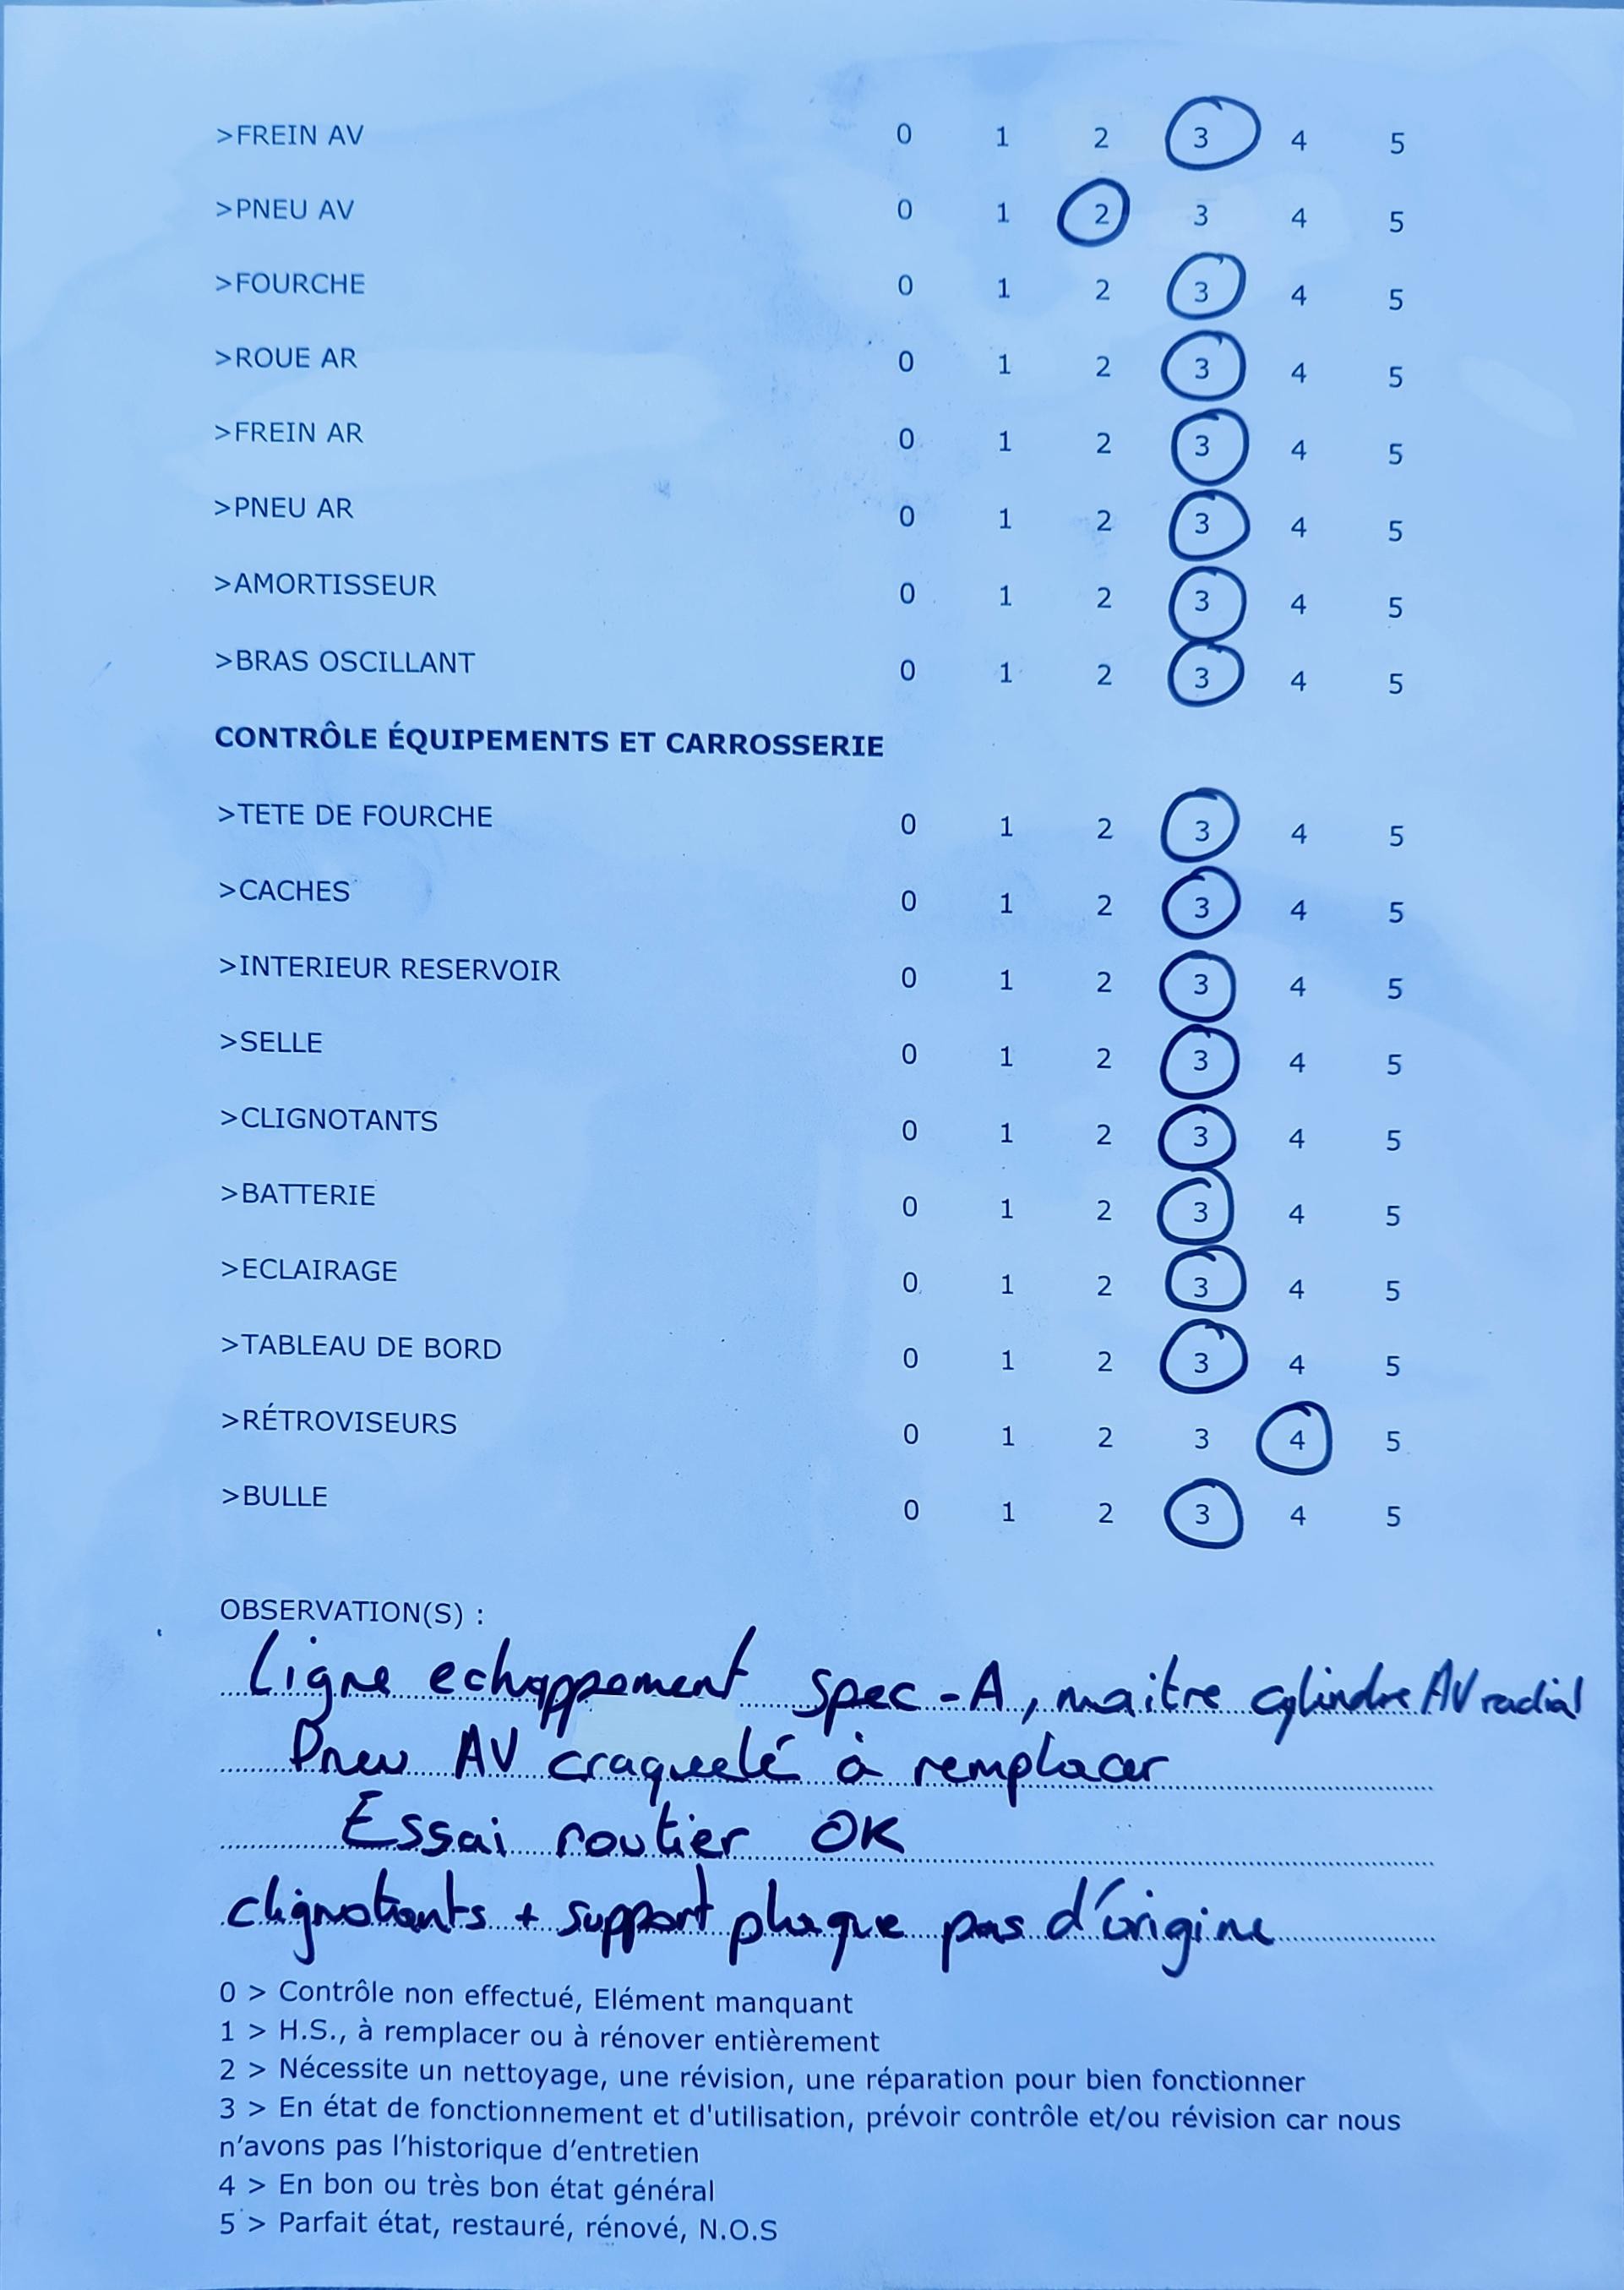 >FREIN AV 0 1 2 3 4 5
>PNEU AV 0 1 2 3 4 5
>FOURCHE 0 1 2 3 4 5
>ROUE AR 0 1 2 3 4 5
>FREIN AR 0 1 2 3 4 5
>PNEU AR 0 1 2 3 4 5
>AMORTISSEUR 0 1 2 3 4 5
>BRAS OSCILLANT 0 1 2 3 4 5
CONTRÔLE ÉQUIPEMENTS ET CARROSSERIE
>TETE DE FOURCHE 0 1 2 3 4 5
>CACHES 0 1 2 3 4 5
>INTERIEUR RESERVOIR 0 1 2 3 4 5
>SELLE 0 1 2 3 4 5
>CLIGNOTANTS 0 1 2 3 4 5
>BATTERIE 0 1 2 3 4 5
>ECLAIRAGE 0 1 2 3 4 5
>TABLEAU DE BORD 0 1 2 3 4 5
>RÉTROVISEURS 0 1 2 3 4 5
>BULLE 0 1 2 3 4 5
OBSERVATION(S) :
Ligne echappement spec-A, maitre cylindre AV radial
Pneu AV craquelé à remplacer
Essai routier OK
clignotants + support plaque pas d'origine
0 > Contrôle non effectué, Elément manquant
1 > H.S., à remplacer ou à rénover entièrement
2 > Nécessite un nettoyage, une révision, une réparation pour bien fonctionner
3 > En état de fonctionnement et d'utilisation, prévoir contrôle et/ou révision car nous
n'avons pas l'historique d'entretien
4 > En bon ou très bon état général
5 > Parfait état, restauré, rénové, N.O.S